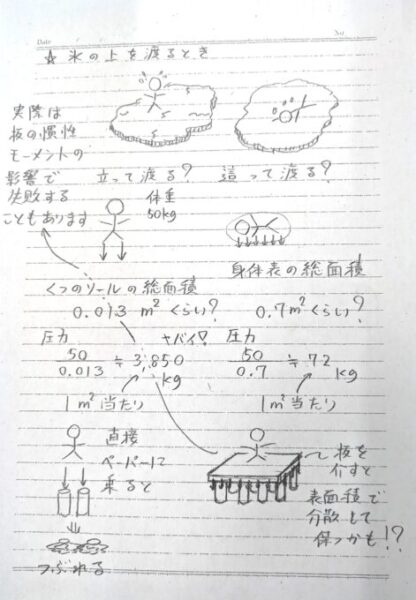 Date
No.
☆ 氷の上を渡るとき
実際は
板の慣性
モーメントの
影響で
失敗する
こともあります
立って渡る?
這って渡る?
体重
50kg
くつのソールの総面積
0.013 m² くらい?
身体表の総面積
0.7m² くらい?
圧力
50/0.013 ≒ 3,850 kg
ヤバイ!
1m² 当たり
圧力
50/0.7 ≒ 72 kg
1m² 当たり
直接
ペーパーに
乗ると
つぶれる
板を
介すと
表面積で
分散して
保つかも!?